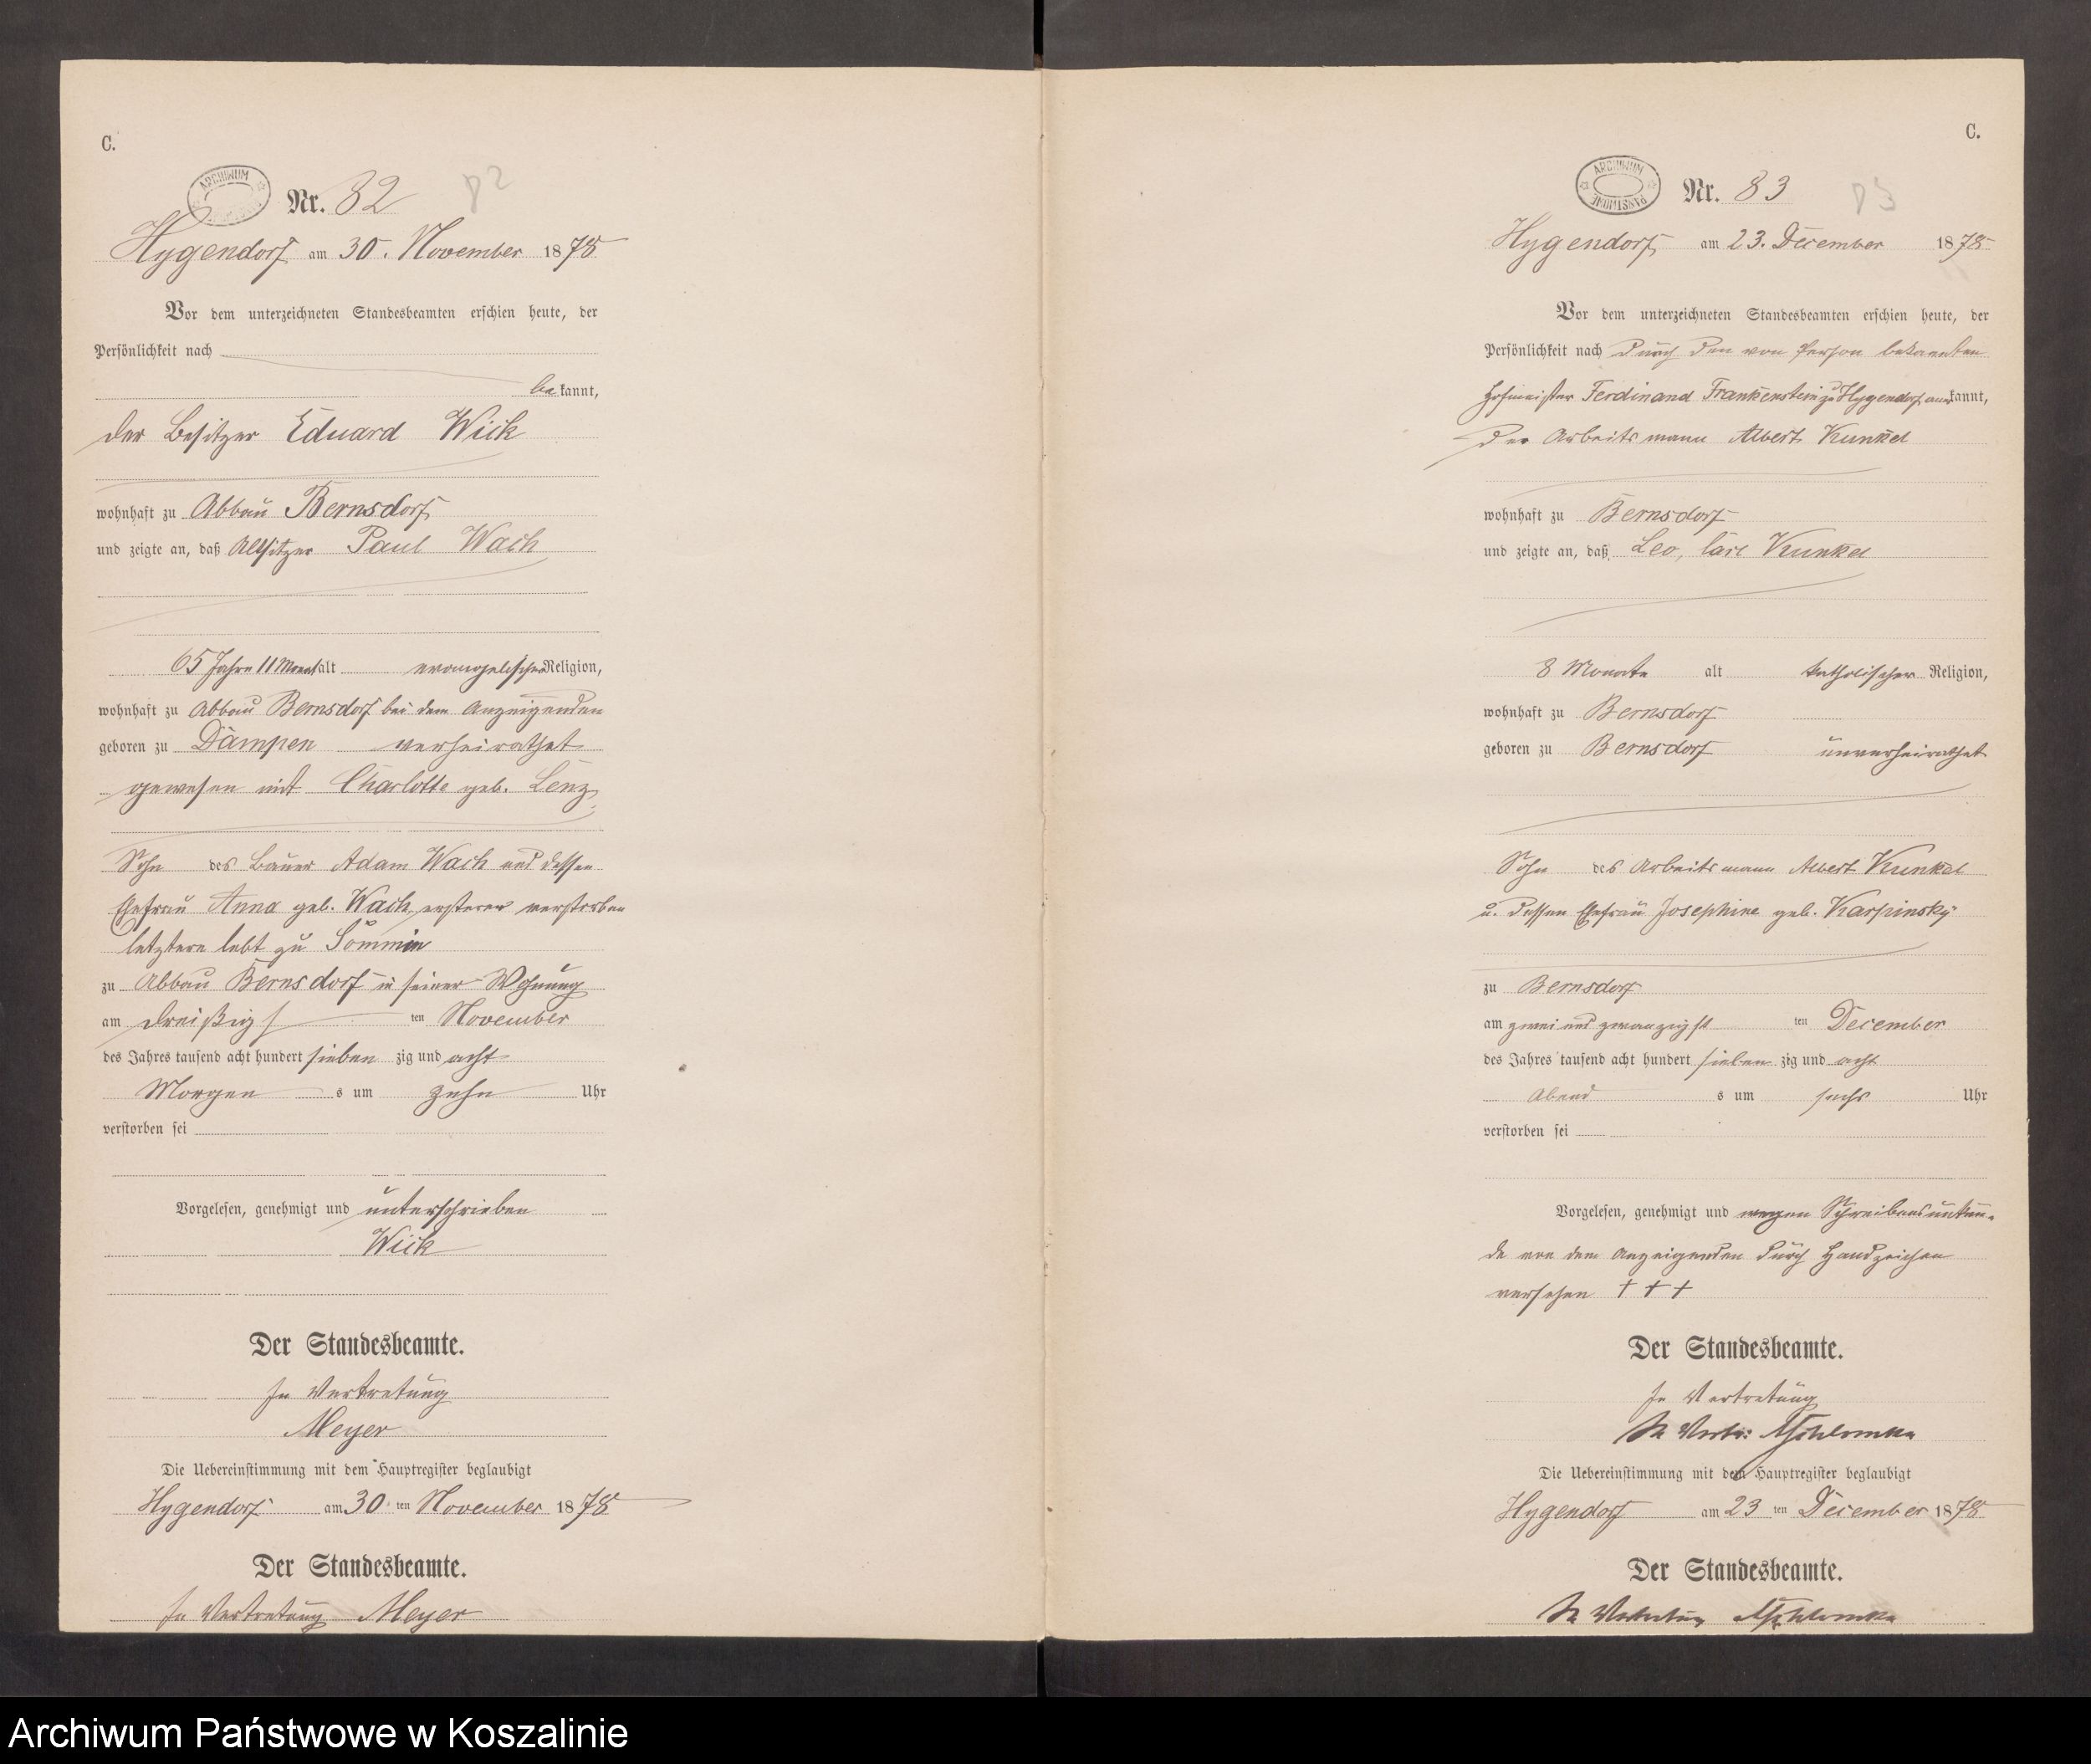 C.
ARCHIWUM
Nr. 82
82
Hygendorf am 30. November 1878
Vor dem unterzeichneten Standesbeamten erschien heute, der
Persönlichkeit nach
bekannt,
der Besitzer Eduard Wiik
wohnhaft zu Abbau Bernsdorf
und zeigte an, daß Altsitzer Paul Wach
65 Jahre 11 Monat alt evangelischer Religion,
wohnhaft zu Abbau Bernsdorf bei dem Anzeigenden
geboren zu Dampen verheirathet
gewesen mit Charlotte geb. Lenz
Sohn des Bauer Adam Wach und dessen
Ehefrau Anna geb. Wach, ersterer verstorben
letztere lebt zu Sommin
zu Abbau Bernsdorf in seiner Wohnung
am dreißigsten November
des Jahres tausend acht hundert siebenzig und acht
Morgens um zehn Uhr
verstorben sei
Vorgelesen, genehmigt und unterschrieben
Wiik
Der Standesbeamte.
In Vertretung
Meyer
Die Uebereinstimmung mit dem Hauptregister beglaubigt
Hygendorf am 30ten November 1878
Der Standesbeamte.
In Vertretung Meyer
C.
ARCHIWUM PAŃSTWOWE
Nr. 83
83
Hygendorf am 23. December 1878
Vor dem unterzeichneten Standesbeamten erschien heute, der
Persönlichkeit nach durch den von Person bekannten
Hofmeister Ferdinand Frankenstein zu Hygendorf anerkannt,
der Arbeitsmann Albert Kunkel
wohnhaft zu Bernsdorf
und zeigte an, daß Leo, Carl Kunkel
8 Monate alt katholischer Religion,
wohnhaft zu Bernsdorf
geboren zu Bernsdorf unverheirathet
Sohn des Arbeitsmann Albert Kunkel
u. dessen Ehefrau Josephine geb. Karpinsky
zu Bernsdorf
am zwei und zwanzigsten December
des Jahres tausend acht hundert siebenzig und acht
Abends um sechs Uhr
verstorben sei
Vorgelesen, genehmigt und wegen Schreibensunkun-
de von dem Anzeigenden durch Handzeichen
versehen + + +
Der Standesbeamte.
In Vertretung
In Vertr:
Die Uebereinstimmung mit dem Hauptregister beglaubigt
Hygendorf am 23ten December 1878
Der Standesbeamte.
In Vertretung
Archiwum Państwowe w Koszalinie